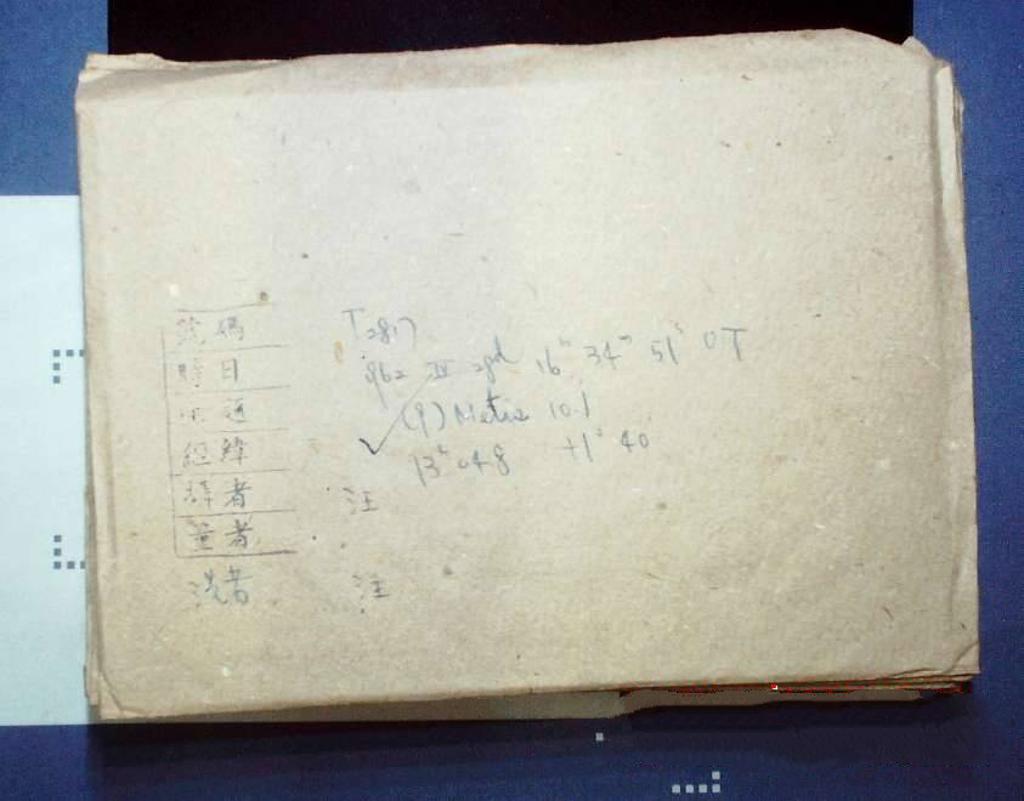 號碼 T2817
時日 962 IV 29d 16h 34m 51s UT
(9) Metis 10.1
經緯 13h 04.8 +1° 40
者 汪
量者
洗者 汪